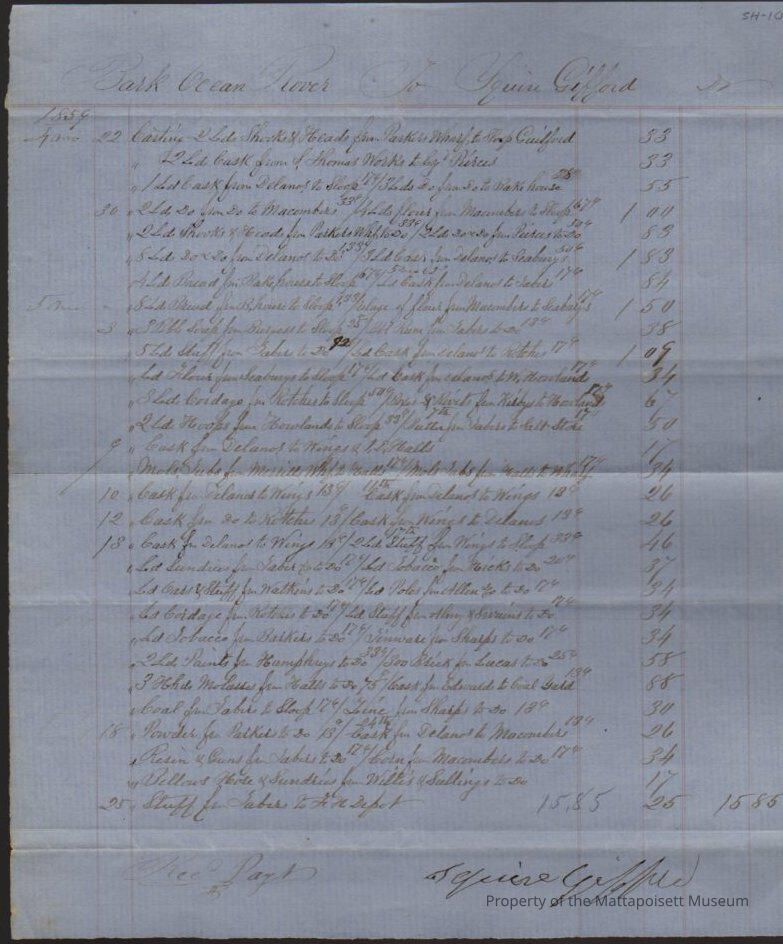 SH-10
Bark Ocean Rover To Squire Gifford Dr
1859
22 Carting 2 Lds Shooks & Heads from Parkers Wharf to Sloop Guilford 33
" 2 Ld Cask from Thomas Works to Pierces 33
" 1 Ld Cask from Delanos to Sloop 17¢/ 3 Lds Do from Do to Bake house 38¢ 55
30 " 2 Ld Do from Do to Macombers 33¢/ 4 Lds flour from Macombers to Sloop 67¢ 1 00
" 2 Ld Shooks & Heads from Parkers Whf to Do 33¢/ 2 Ld Do & Do from Pierces to Do 50¢ 83
" 8 Ld Do & Do from Delanos to Do 133¢/ 3 Ld Oars from Delanos to Seaburys 50¢ 1 83
" 4 Ld Bread from Bakehouse to Sloop 67¢/ Ld Cask from Delanos to Tabers 17¢ 84
" 8 Ld Bread from B house to Sloop 133/ of flour from Macombers to Seaburys 17¢ 1 50
3 " Soap from Burgess to Sloop 25/ from Tabers to Do 13¢ 38
" 5 Lds Stuff from Taber to Do 92/ Ld Cask from Delanos to Rotches 17¢ 1 09
" Ld Flour from Seaburys to Sloop 17¢/ Ld Cask from Delanos to W. Howland 17¢ 34
" 3 Ld Cordage from Rotches to Sloop 50¢/ & Rivets from Kirbys to Howland 17¢ 67
" 2 Ld Hoops from Howlands to Sloop 33¢/ Butter from Tabers to Store 17¢ 50
9 " Cask from Delanos to Wings & Halls 17
" Mols Tubs from Merrills Whf to Halls 17¢/ Mols Tubs from Halls to Wharf 17¢ 34
10 " Cask from Delanos to Wings 13¢/ Cask from Delanos to Wings 13¢ 26
12 " Cask from Do to Rotches 13/ Cask from Wings to Delanos 13¢ 26
18 " Cask from Delanos to Wings 13¢/ 2 Ld Stuff from Wings to Sloop 33¢ 46
" Ld Sundries from Taber & Co to Do 17¢/ Ld Tobacco from Hicks to Do 20¢ 37
" Ld Oars & Stuff from Watkins to Do 17¢/ Ld Poles from Allen & Co to Do 17¢ 34
" Ld Cordage from Rotches to Do 17¢/ Ld Stuff from Almy & Swains to Do 17¢ 34
" Ld Tobacco from Barkers to Do 17¢/ Tinware from Sharps to Do 17¢ 34
" 2 Ld Paints from Humphrys to Do 33¢/ 300 Brick from Lucas to Do 25¢ 58
" 3 Hhds Molasses from Halls to Do 75¢/ Cask from Edwards to Coal Yard 13¢ 88
" Coal from Tabers to Sloop 17¢/ from Sharps to Do 13¢ 30
18 " Powder from Parkers to Do 13¢/ Cask from Delanos to Macombers 13¢ 26
" Rosin & Guns from Tabers to Do 17¢/ Corn from Macombers to Do 17¢ 34
" Bellows Hose & Sundries from Willis & Sullings to Do 17
25 " Stuff from Tabers to F H Depot 15.85 25 15 85
Rec Payt
Squire Gifford
Property of the Mattapoisett Museum